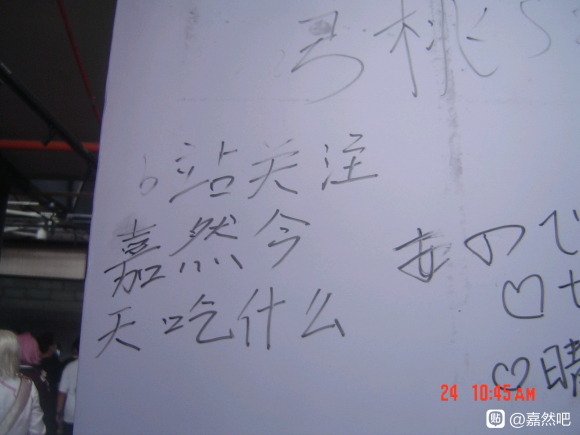 桃
b站关注
嘉然今
天吃什么
あのて
♡
♡晴
24 10:45AM
贴 @嘉然吧